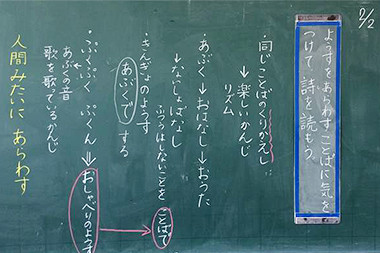 2/2
ようすをあらわすことばに気を
つけて、詩を読もう。
・同じことばのくりかえし
→楽しいかんじ
リズム
・あぶく→おはなし→おった
↓ないしょばなし
ふつうはしないことを
ことばで
・きんぎょのようす
あぶくでする
・ぷくぷく ぷくん⇒おしゃべりのようす
あぶくの音
歌を歌っているかんじ
人間みたいに あらわす